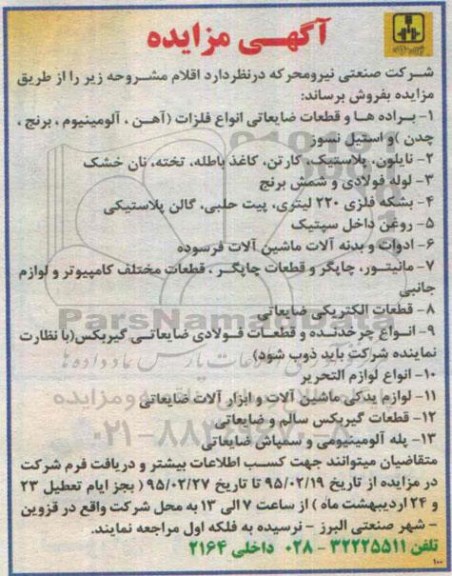 آگهـی مزایده
شـرکت صنعتی نیرومحرکه درنظردارد اقلام مشـروحه زیر را از طریق
مزایده بفروش برساند:
۱- بـراده هـا و قطعات ضایعاتی انواع فلزات (آهـن ، آلومینیوم ، برنج ،
چدن )و استیل نسوز
۲- نایلون، پلاستیک، کارتن، کاغذ باطله، تخته، نان خشک
۳- لوله فولادی و شمش برنج
۴- بشکه فلزی ۲۲۰ لیتری، پیت حلبی، گالن پلاستیکی
۵- روغن داخل سپتیک
۶- ادوات و بدنه آلات ماشین آلات فرسوده
۷- مانیتـور، چاپگر و قطعات چاپگـر ، قطعات مختلف کامپیوتر و لوازم
جانبی
۸- قطعات الکتریکی ضایعاتی
۹- انـواع چرخدنـده و قطعـات فـولادی ضایعاتـی گیربکس(با نظارت
نماینده شرکت باید ذوب شود)
۱۰- انواع لوازم التحریر
۱۱- لوازم یدکی ماشین آلات و ابزار آلات ضایعاتی
۱۲- قطعات گیربکس سالم و ضایعاتی
۱۳- پله آلومینیومی و سمپاش ضایعاتی
متقاضیان میتوانند جهت کسـب اطلاعات بیشتر و دریافت فرم شرکت
در مزایده از تاریخ ۹۵/۰۲/۱۹ تا تاریخ ۹۵/۰۲/۲۷ ( بجز ایام تعطیل ۲۳
و ۲۴ اردیبهشت ماه ) از ساعت ۷ الی ۱۳ به محل شرکت واقع در قزوین
- شهر صنعتی البرز - نرسیده به فلکه اول مراجعه نمایند.
تلفن ۳۲۲۲۵۵۱۱ - ۰۲۸ داخلی ۲۱۶۴
۱۰۰
ParsNamadData